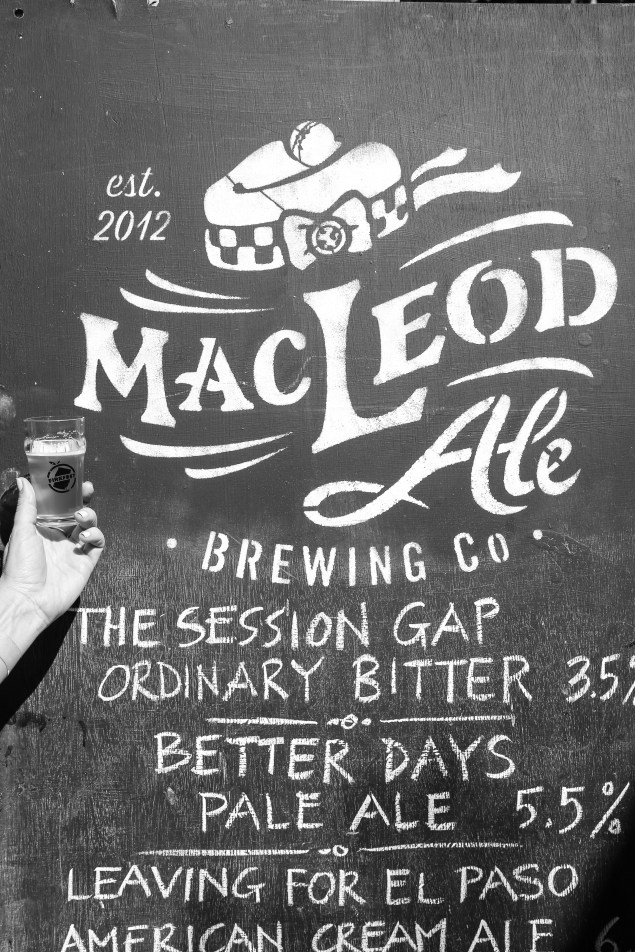 est.
2012
MACLEOD
Ale
• BREWING CO •
THE SESSION GAP
ORDINARY BITTER 3.5%
BETTER DAYS
PALE ALE 5.5%
LEAVING FOR EL PASO
AMERICAN CREAM ALE 6